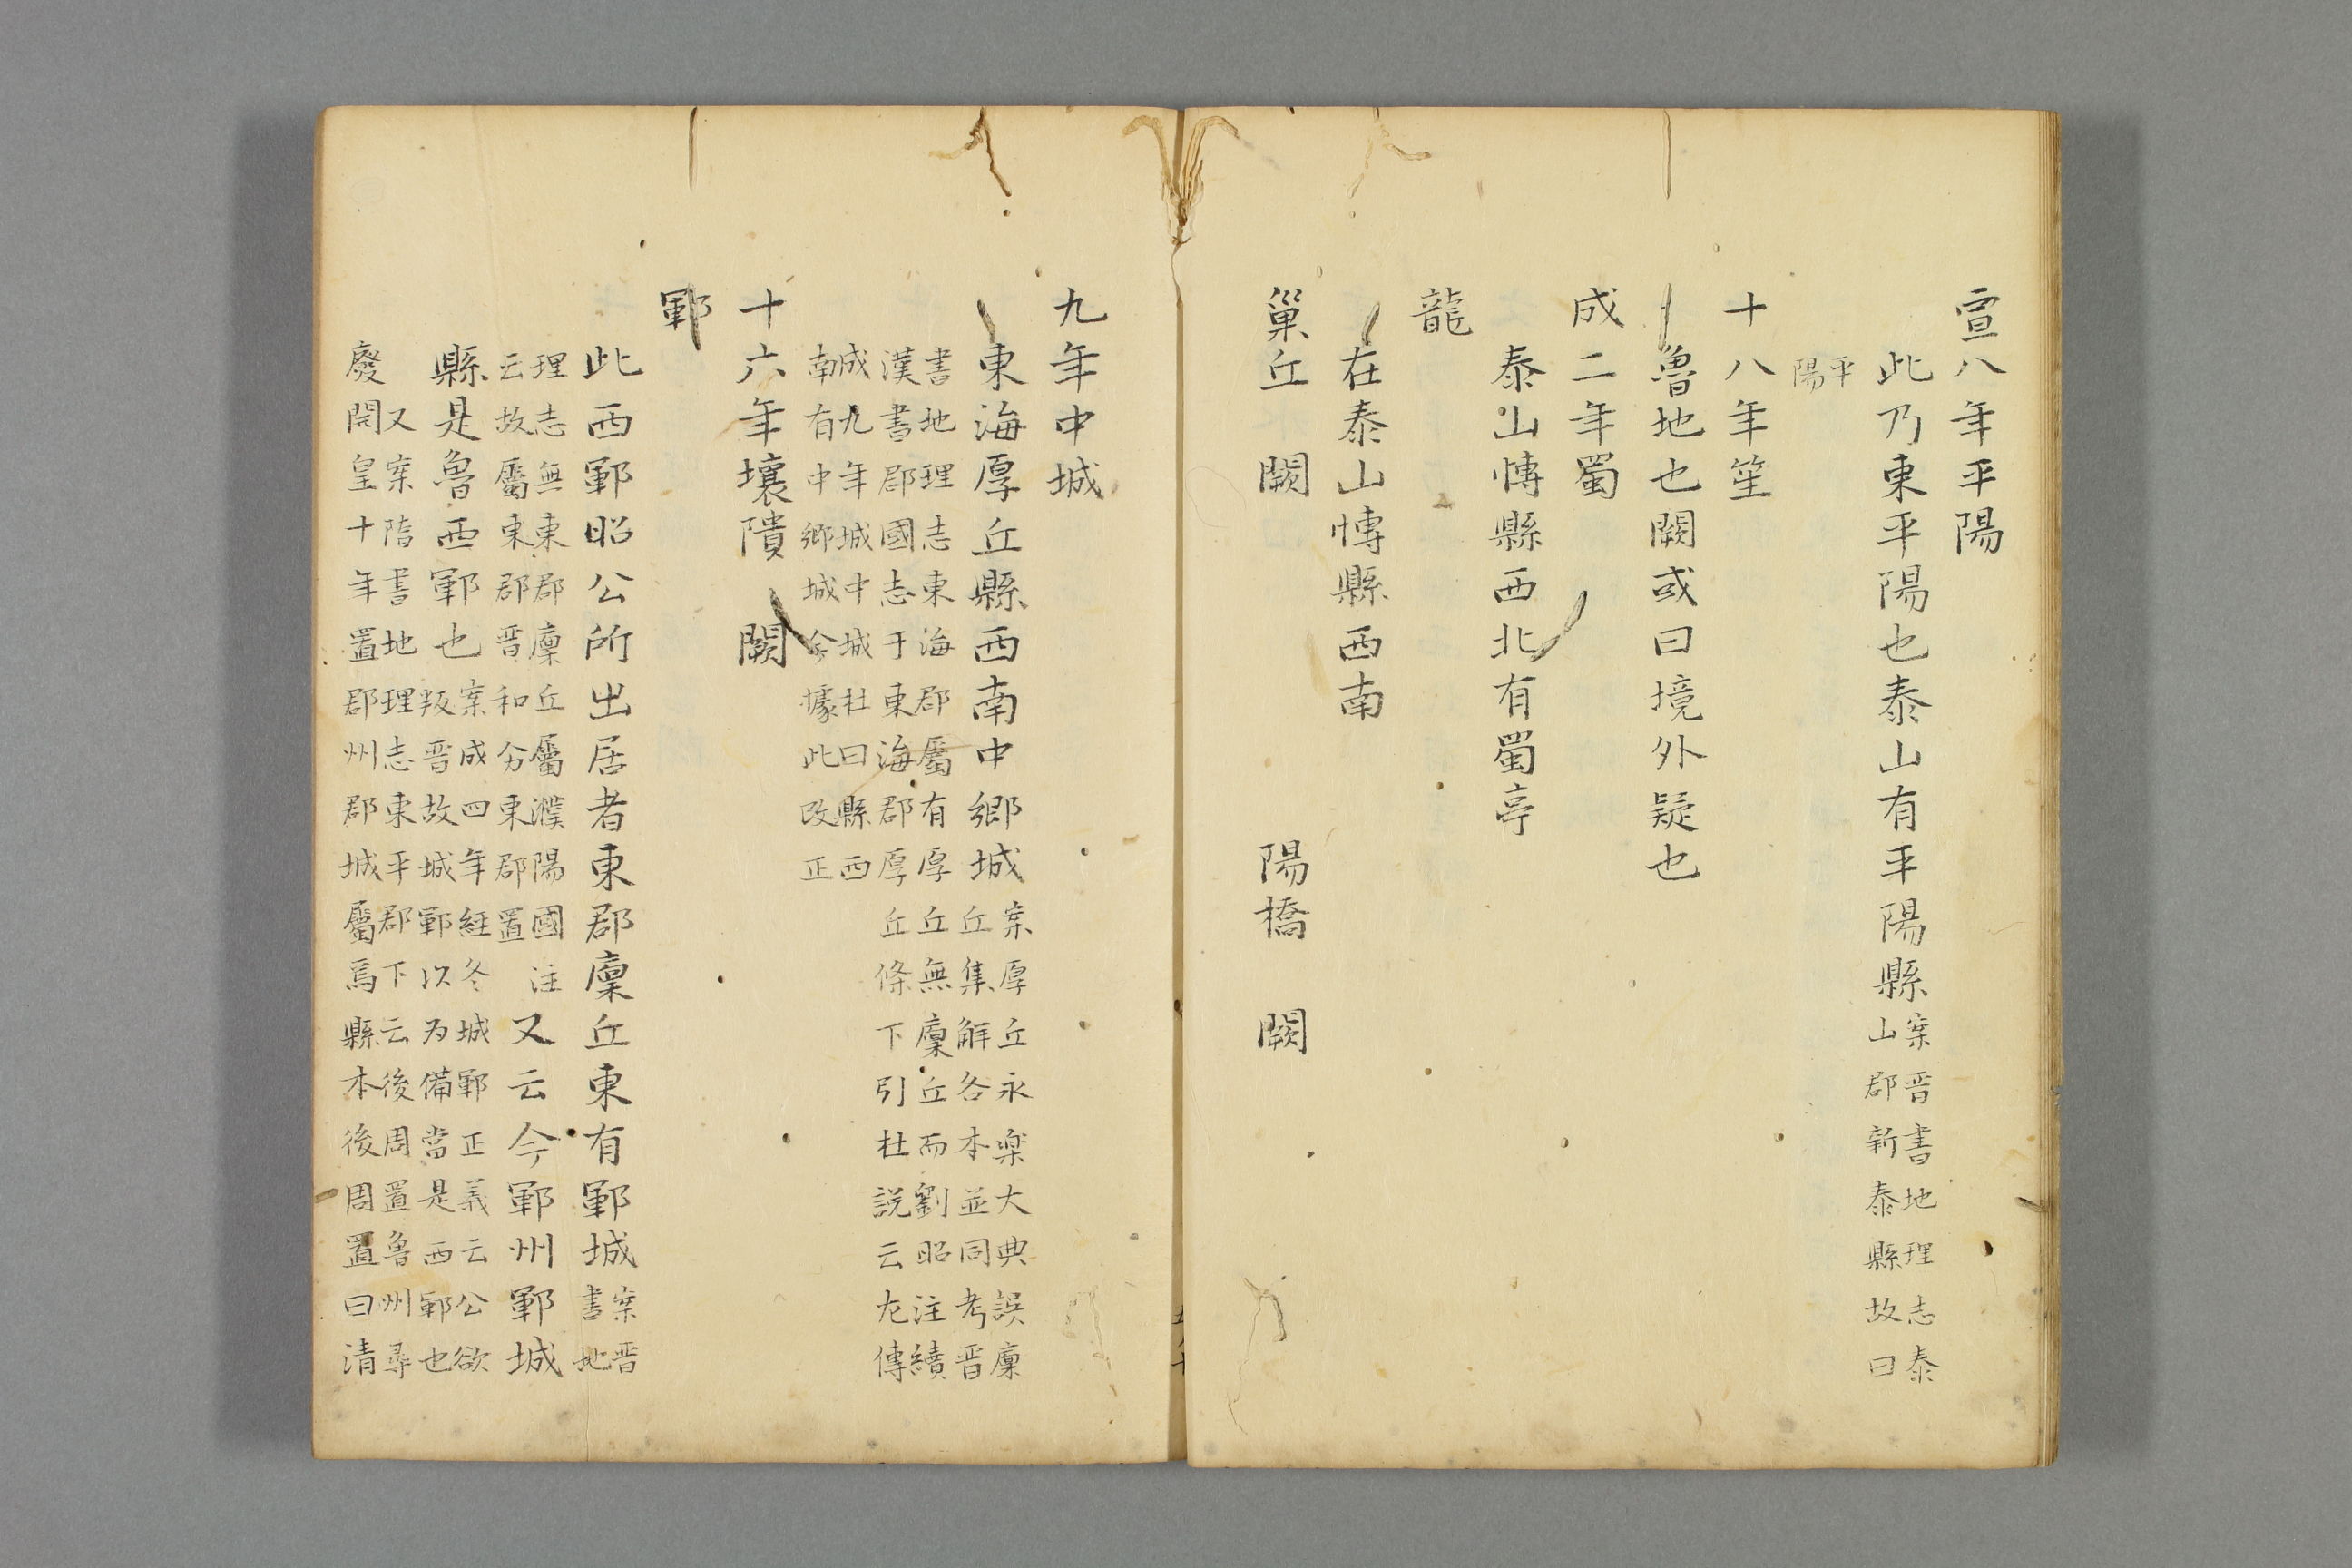 宣八年平陽
此乃東平陽也泰山有平陽縣案晋書地理志泰
山郡新泰縣故曰
平
陽
十八年笙
魯地也闕或曰境外疑也
成二年蜀
泰山慱縣西北有蜀亭
龍
在泰山慱縣西南
巢丘　闕　陽橋　闕
九年中城
東海厚丘縣西南中鄉城案厚丘永楽大典誤廩
丘集解各本並同考晋
書地理志東海郡屬有厚丘無廩丘而劉昭注續
漢書郡國志于東海郡厚丘條下引杜説云左傳
成九年城中城杜曰縣西
南有中鄉城今據此改正
十六年壤隤　闕
鄆
此西鄆昭公所出居者東郡廩丘東有鄆城案晋
書地
理志無東郡廩丘屬濮陽國注
云故屬東郡晋和分東郡置
又云今鄆州鄆城
縣是魯西鄆也案成四年経冬城鄆正義云公欲
叛晋故城鄆以为備當是西鄆也
又案隋書地理志東平郡下云後周置魯州尋
廢開皇十年置郡州郡城屬焉縣本後周置曰清